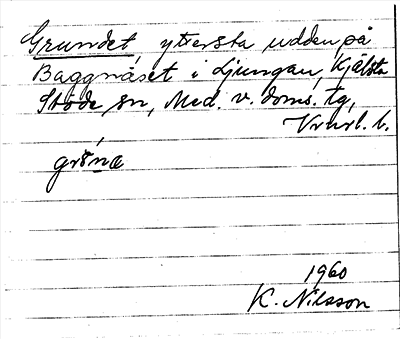 Grundet, yttersta udden på
Baggnäset i Ljungan, Kjälsta
Stöde sn, Med. v. doms. tg,
Vrnrl. b.
1960
K. Nilsson